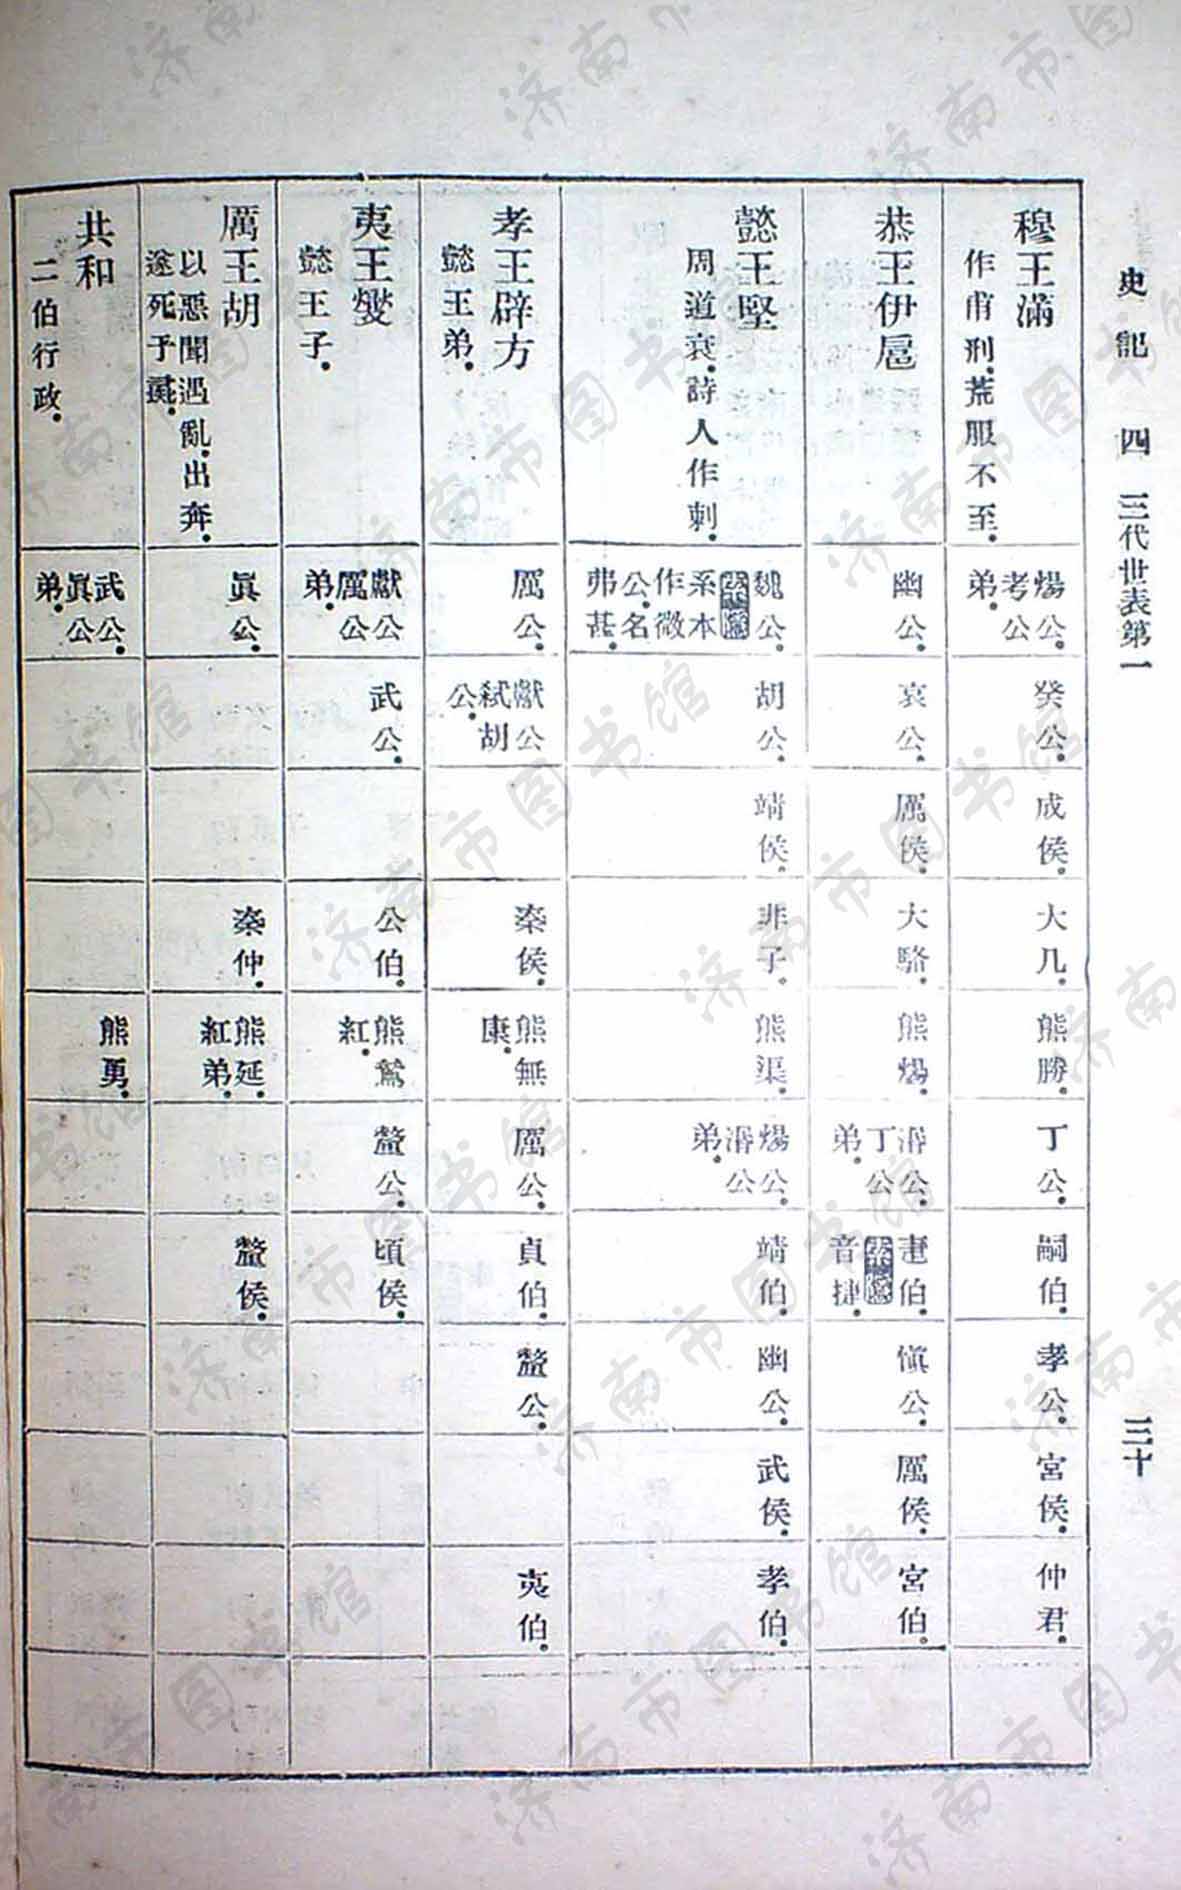 史記 四 三代世表第一 三十
穆王滿
作甫刑.荒服不至.
煬公.考公弟.
癸公.
成侯.
大几.
熊勝.
丁公.
嗣伯.
孝公.
宮侯.
仲君.
恭王伊扈
幽公.
哀公.
厲侯.
大駱.
熊煬.
湣公.丁公弟.
疌伯.索隱音捷.
愼公.
厲侯.
宮伯。
懿王堅
周道衰.詩人作刺.
魏公.索隱系本作微公.名弗甚.
胡公.
靖侯.
非子.
熊渠.
煬公.湣公弟.
靖伯.
幽公.
武侯.
孝伯.
孝王辟方
懿王弟.
厲公.
獻公弑胡公.
秦侯.
熊無康.
厲公.
貞伯.
釐公.
夷伯.
夷王燮
懿王子.
獻公厲公弟.
武公.
公伯.
熊鷙紅.
釐公.
頃侯.
厲王胡
以惡聞遇亂.出奔.
遂死于彘.
眞公.
秦仲.
熊延.紅弟.
釐侯.
共和
二伯行政.
武公.眞公弟.
熊勇.
济南市图书馆